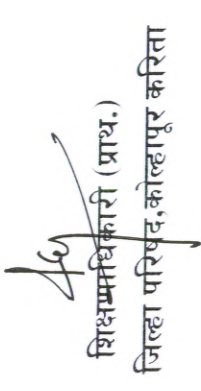 शिक्षणाधिकारी (प्राथ.)
जिल्हा परिषद,कोल्हापूर करिता